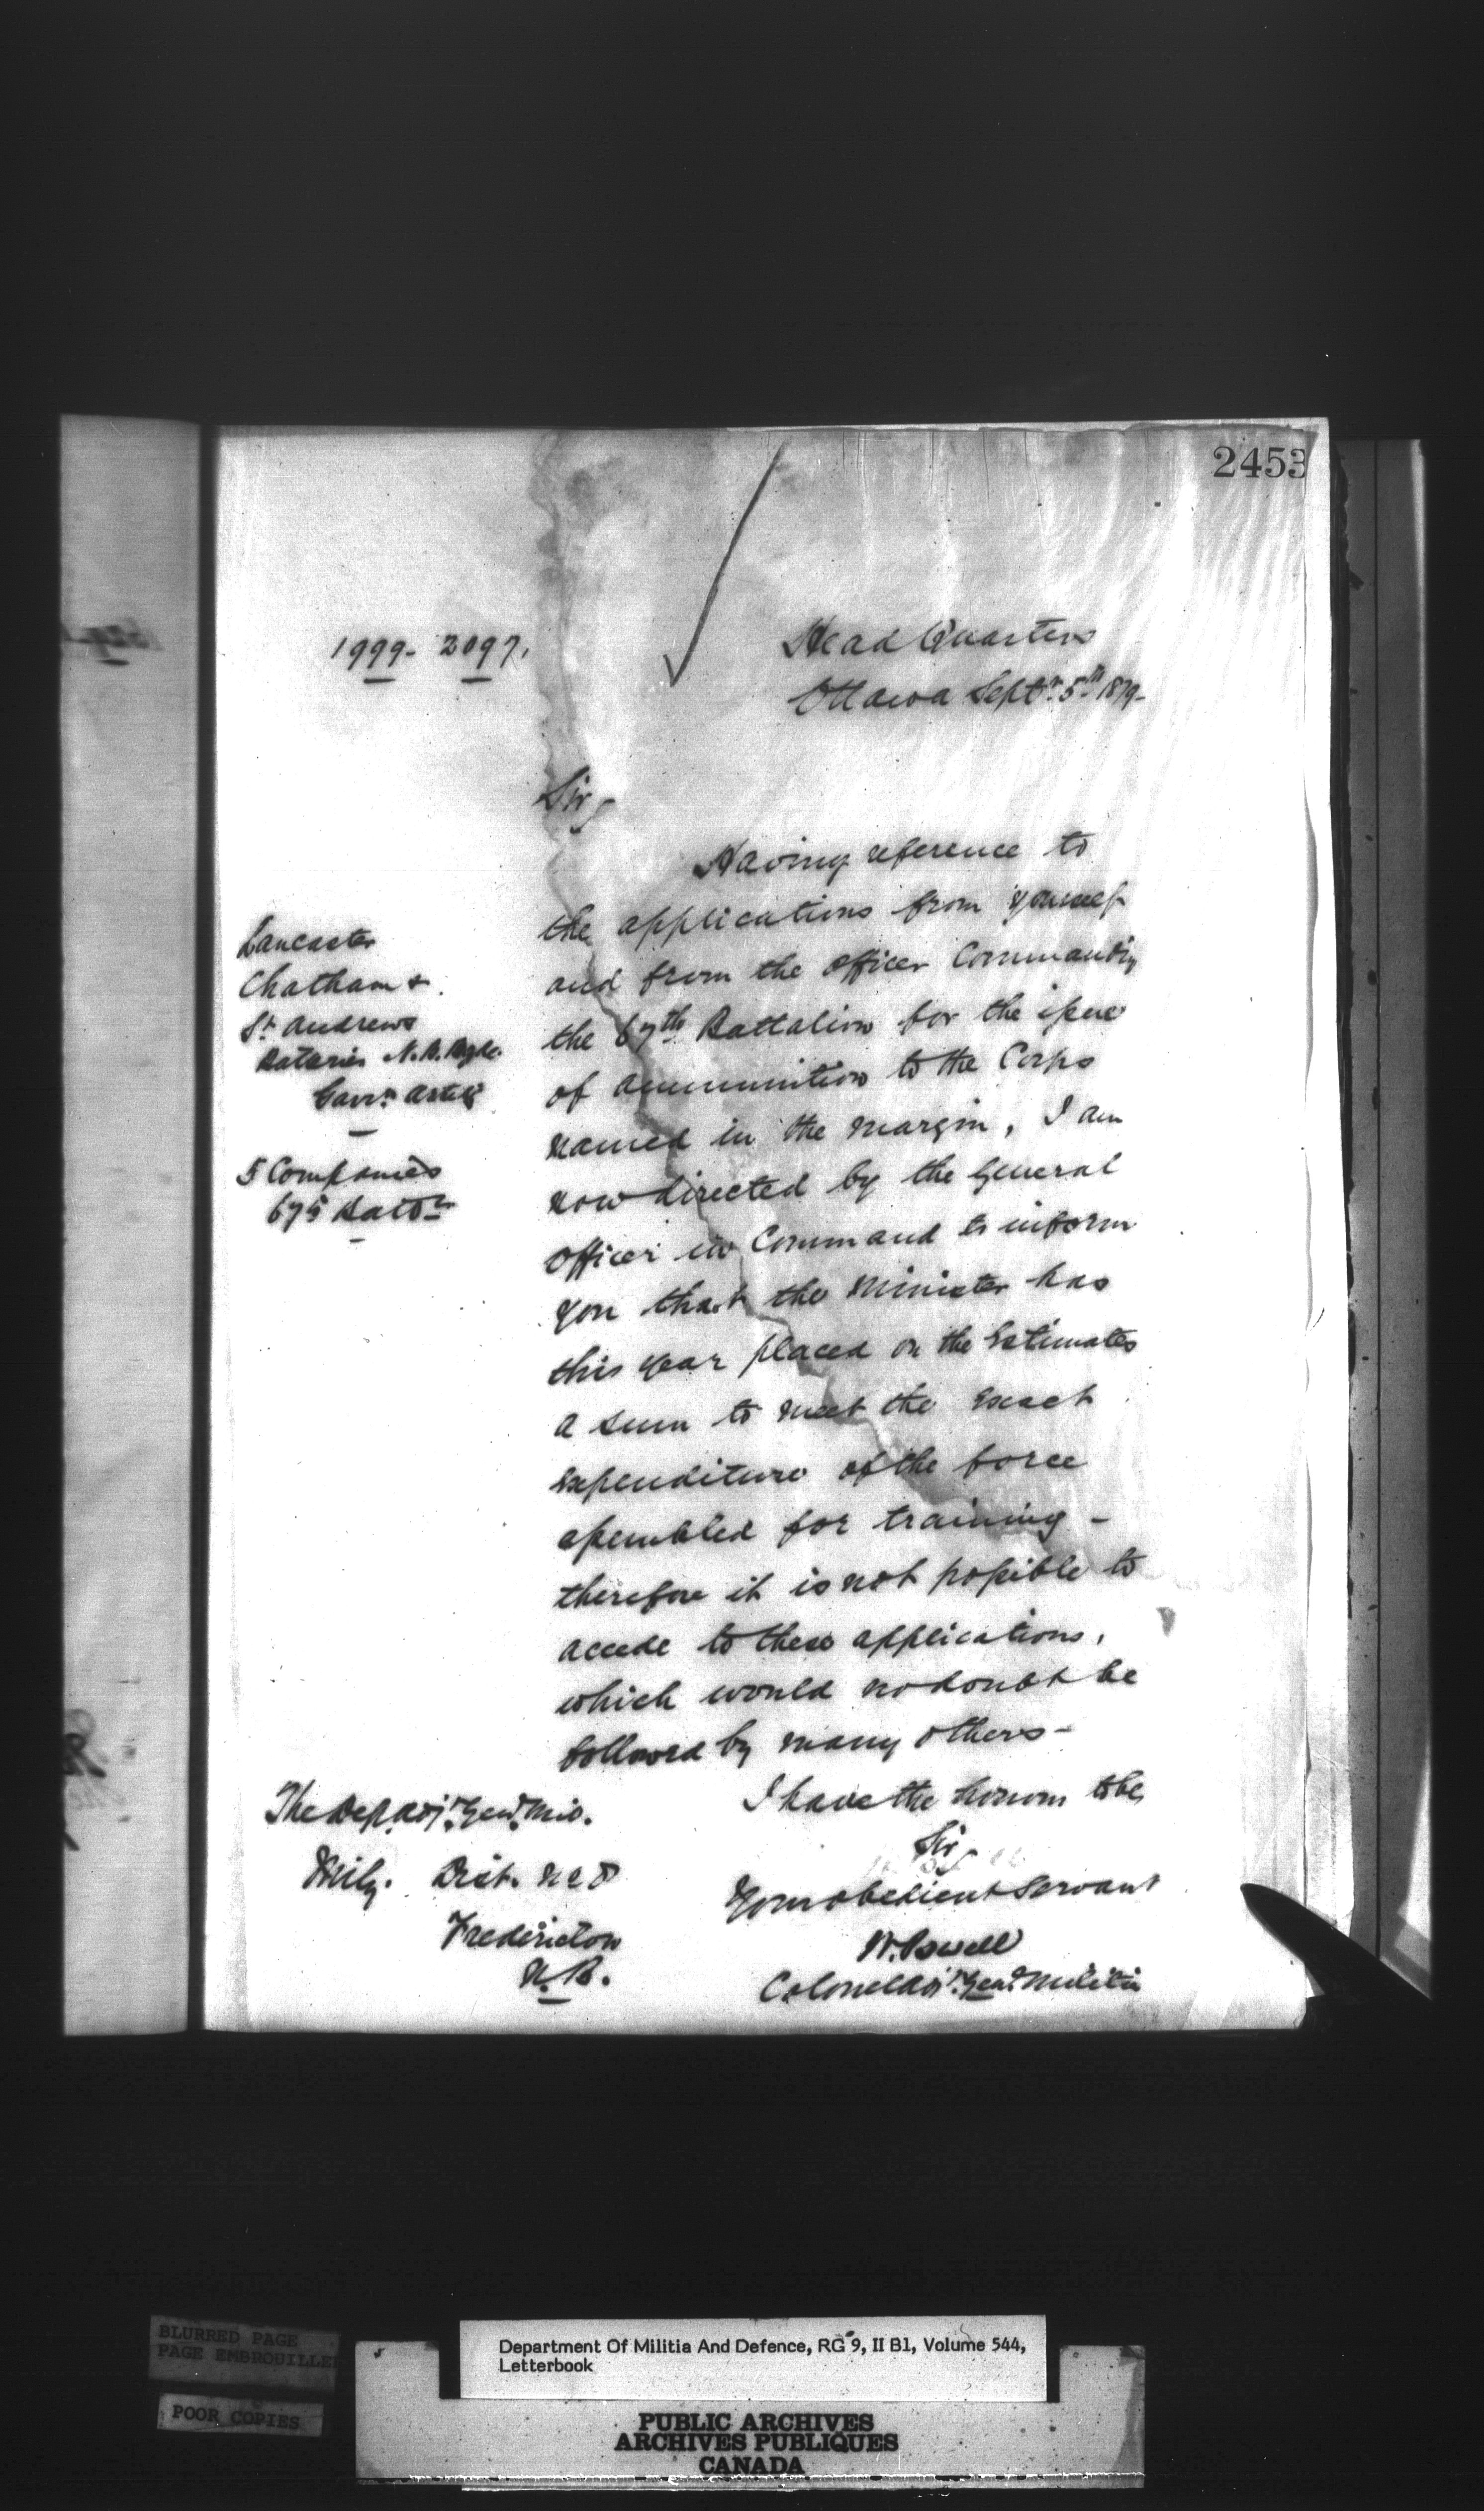 2453
1999- 2097.
Head Quarters
Ottawa Septr. 5th 1879-
Sir,
Having reference to
the applications from yourself
and from the officer Commanding
the 67th Battalion for the issue
of ammunition to the Corps
named in the margin, I am
now directed by the General
officer in Command to inform
you that the Minister has
this year placed on the Estimates
a sum to meet the exact
expenditure of the force
assembled for training -
therefore it is not possible to
accede to these applications,
which would no doubt be
followed by many others-
Lancaster
Chatham &
St. Andrews
Bateries N.B. Bgde.
Garrn. Arty
5 Companies
67th Battn
I have the honour to be,
Sir,
Your obedient servant
W. Powell
Colonel Adjt. Genl. Militia
The Dep. Adjt. Genl. Mil.
Mily. Dist. No 8
Fredericton
N.B.
BLURRED PAGE
PAGE EMBROUILLE
POOR COPIES
Department Of Militia And Defence, RG 9, II B1, Volume 544,
Letterbook
PUBLIC ARCHIVES
ARCHIVES PUBLIQUES
CANADA